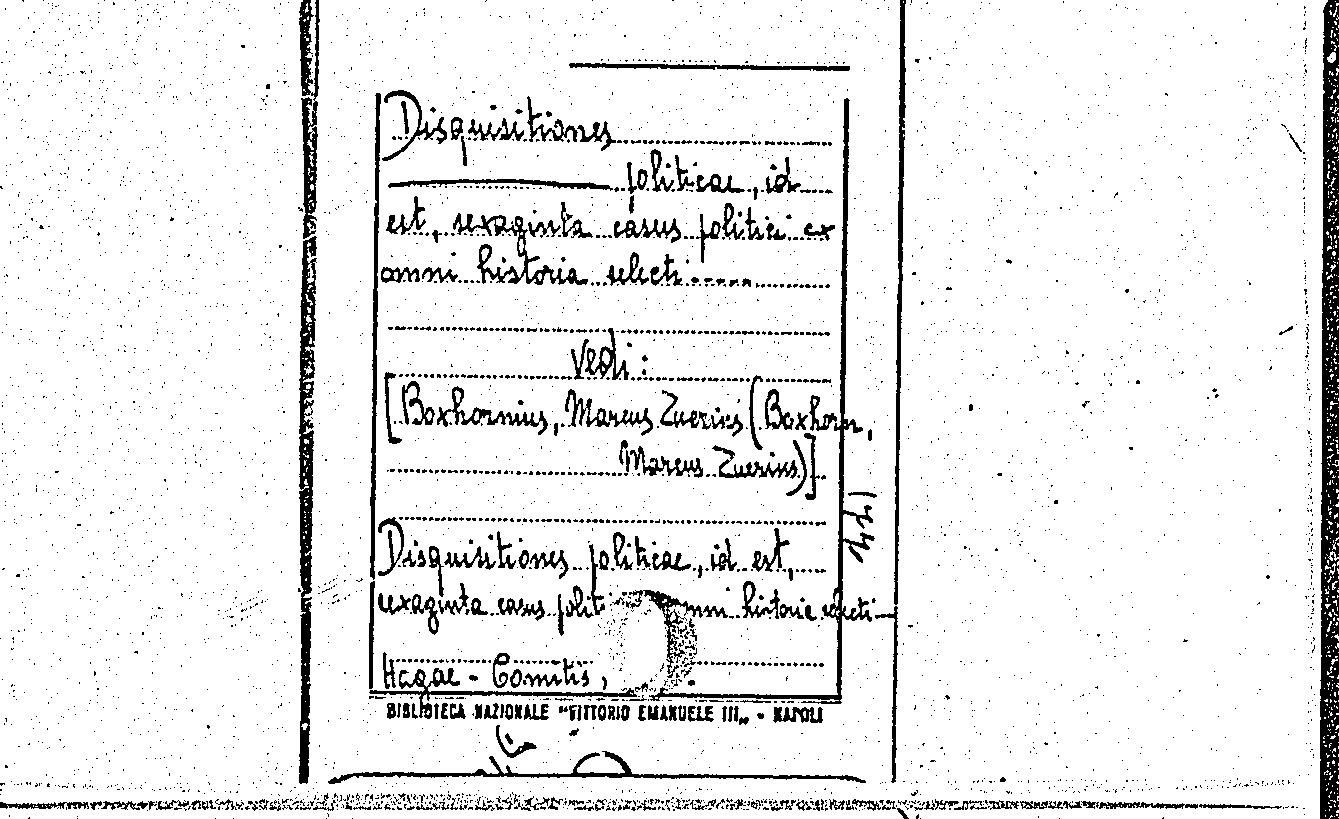 Disquisitiones
politicae, id
est, sexaginta casus politici ex
omni historia selecti.....
Vedi:
[Boxhornius, Marcus Zuerius (Boxhorn,
Marcus Zuerius)]
Disquisitiones politicae, id est,
sexaginta casus omni historia selecti—
Hagae-Comitis,
BIBLIOTECA NAZIONALE "VITTORIO EMANUELE III„ - NAPOLI